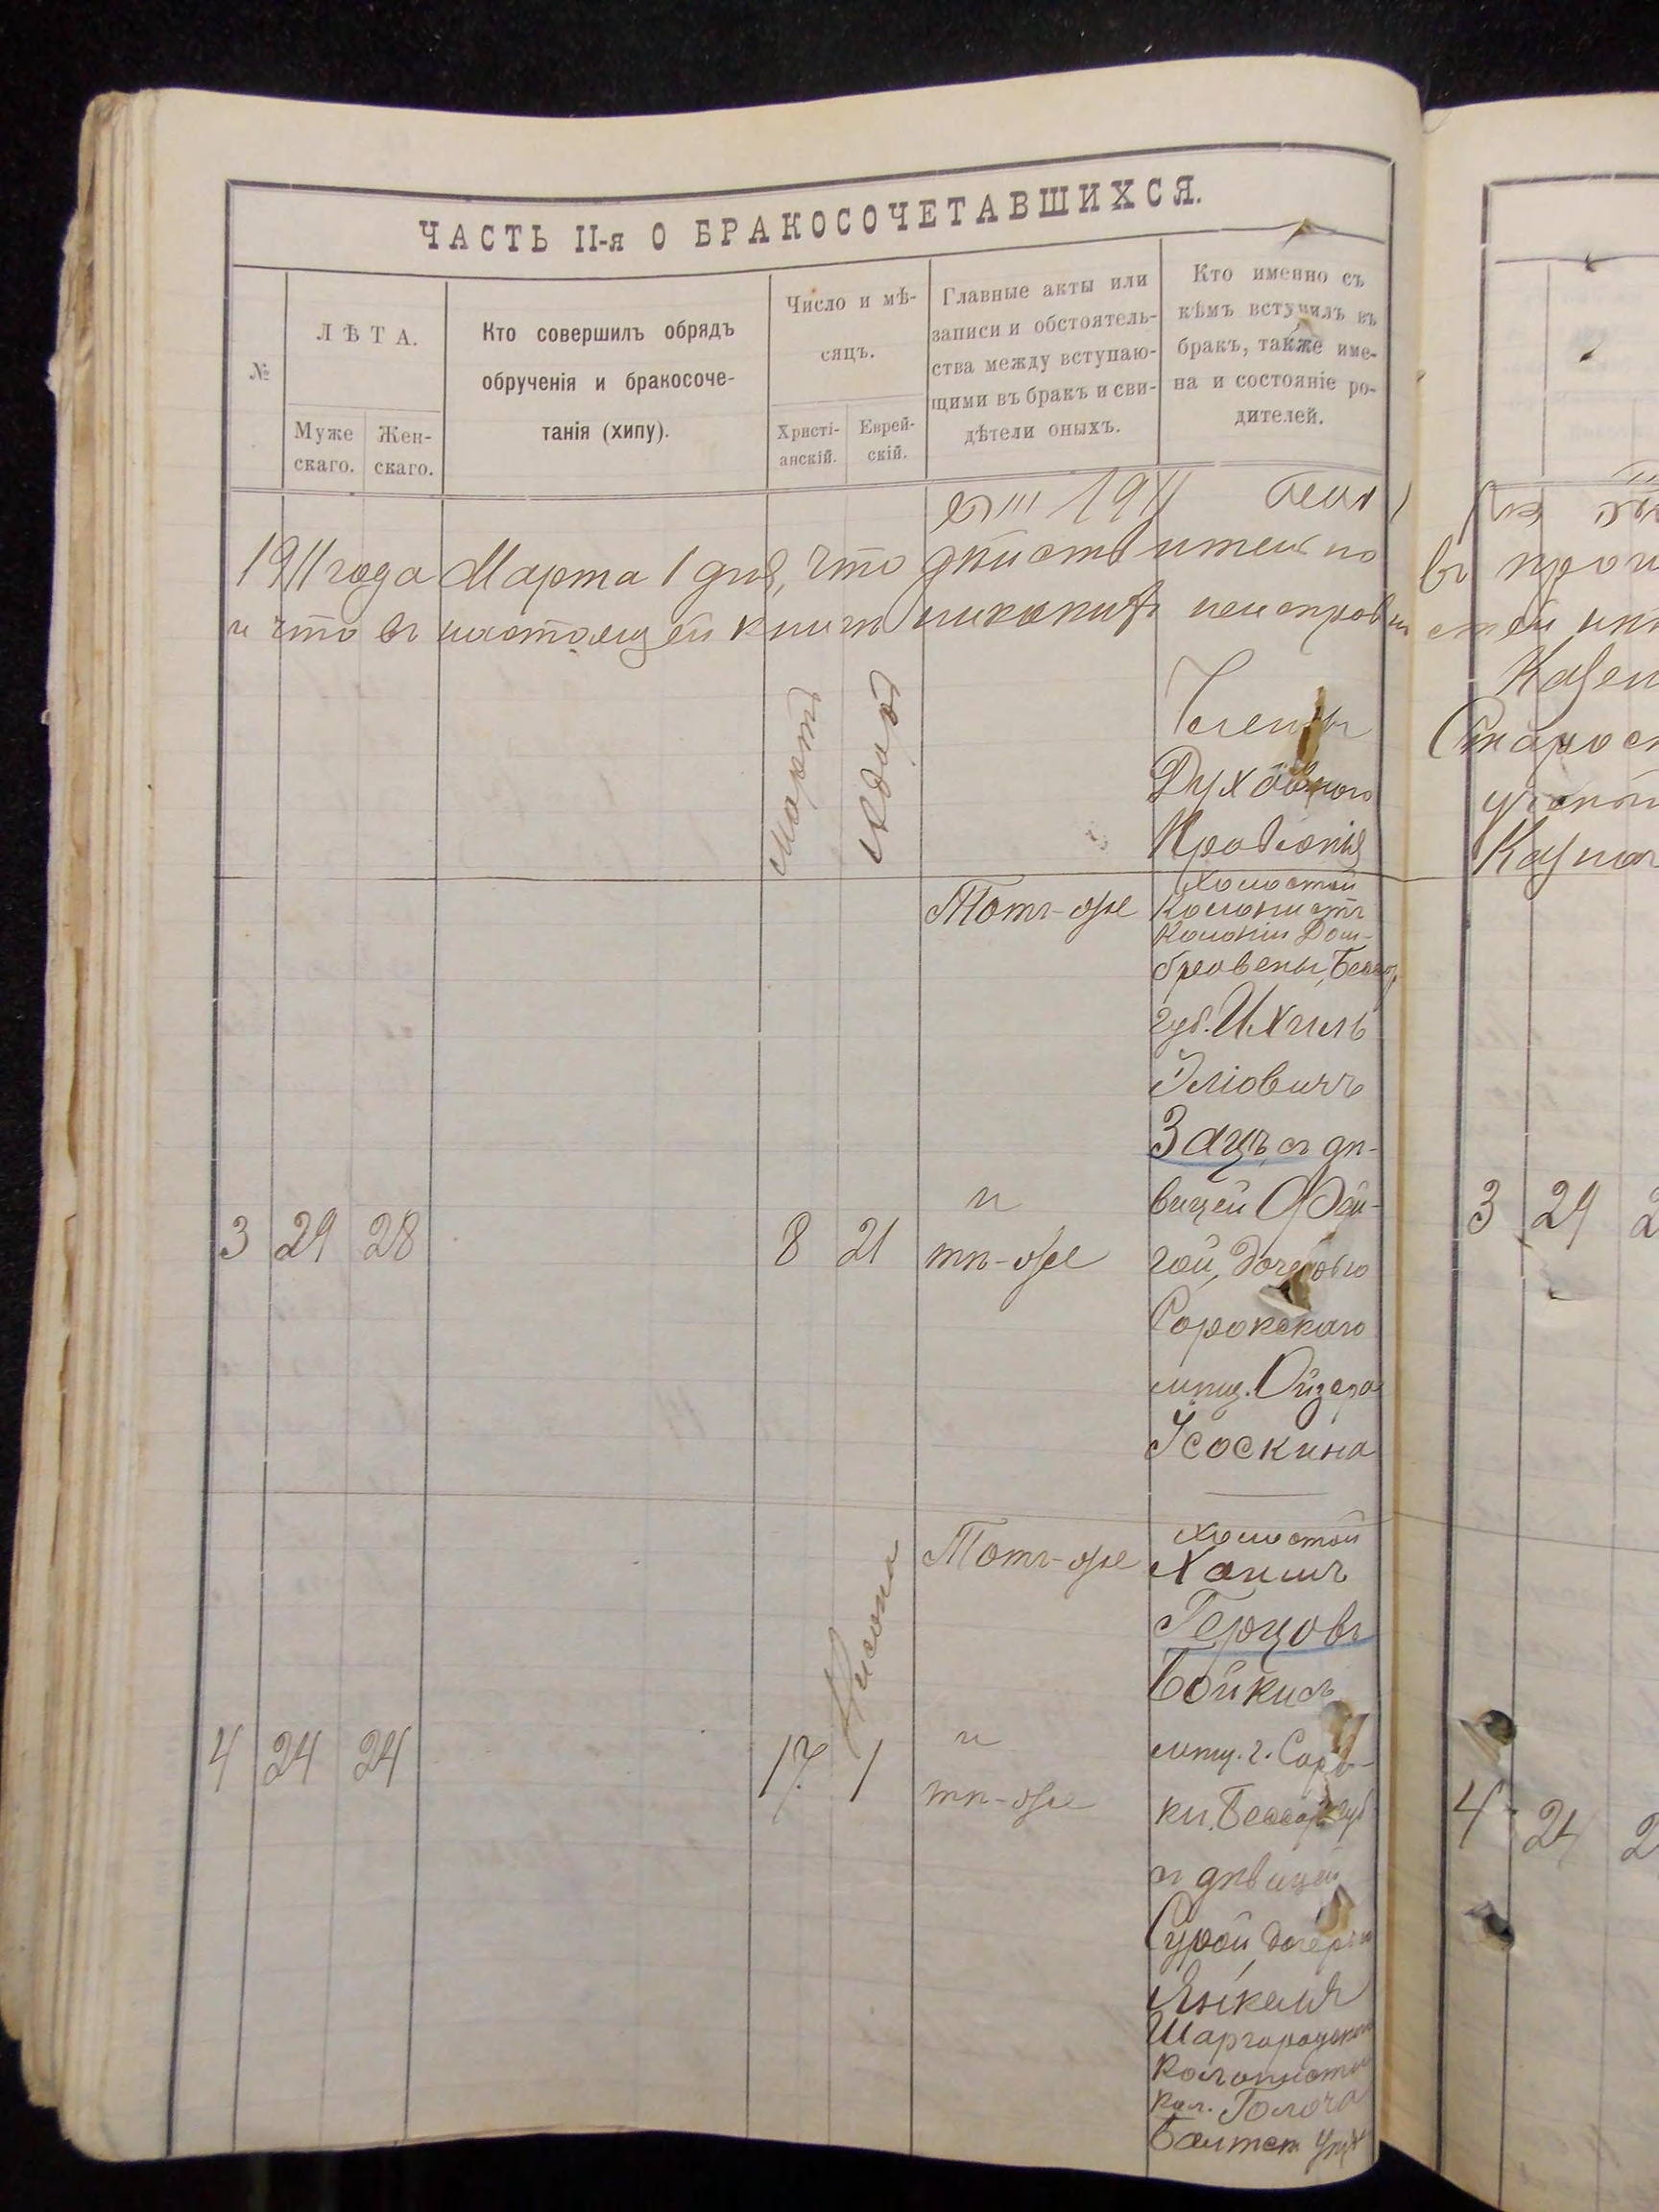 ЧАСТЬ II-я О БРАКОСОЧЕТАВШИХСЯ.
№
ЛѢТА.
Муже
скаго.
Жен-
скаго.
Кто совершилъ обрядъ
обрученія и бракосоче-
танія (хипу).
Число и мѣ-
сяцъ.
Христі-
анскій.
Еврей-
скій.
Главные акты или
записи и обстоятель-
ства между вступаю-
щими въ бракъ и сви-
дѣтели оныхъ.
Кто именно съ
кѣмъ вступилъ въ
бракъ, также име-
на и состояніе ро-
дителей.
1911 года Марта 1 дня, что дѣйствительно
и что въ настоящей книгѣ никакихъ неисправн
Члены
Духовнаго
Правленія
Мартъ
Адаръ
3 29 28
8 21
Тотъ-же
и
тѣ-же
Холостой
Колонистъ
Колоніи Дом-
бровены, Бессар
губ. Ихиль
Эліовичъ
Зацъ, съ дѣ-
вицей Фей-
гой, дочерью
Сорокскаго
мѣщ. Ойзера
Усоскина
4 24 24
17 1
Нисона
Тотъ-же
и
тѣ-же
Холостой
Хаимъ
Герцовъ
Бойкисъ
мѣщ. г. Соро-
ки, Бессар губ
съ дѣвицей
Сурой дочерью
Янкеля
Шаргородскаго
Колониста
кол.
3 29
4 24